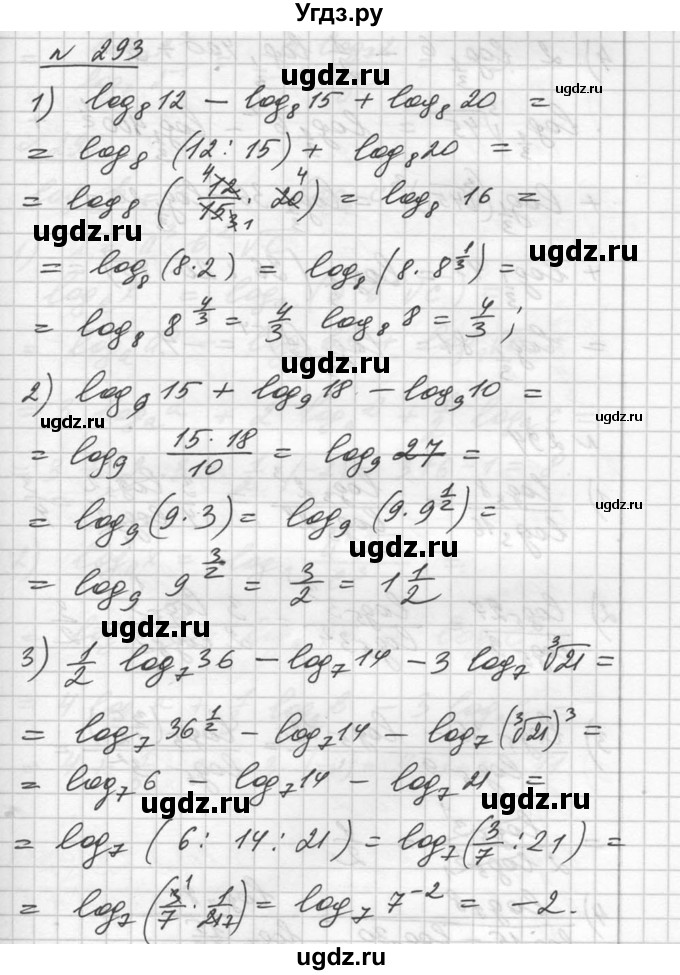 Угдз.ру
№ 293
ugdz.ru
ugdz.ru
1) log₈12 − log₈15 + log₈20 =
= log₈(12 : 15) + log₈20 =
= log₈(12/15 · 20) = log₈16 =
4 4
3 1
ugdz.ru
ugdz.ru
= log₈(8·2) = log₈(8·8^(1/3)) =
= log₈8^(4/3) = 4/3 log₈8 = 4/3;
ugdz.ru
2) log₉15 + log₉18 − log₉10 =
ugdz.ru
= log₉ (15·18)/10 = log₉27 =
= log₉(9·3) = log₉(9·9^(1/2)) =
ugdz.ru
ugdz.ru
= log₉9^(3/2) = 3/2 = 1 1/2
ugdz.ru
3) 1/2 log₇36 − log₇14 − 3 log₇∛21 =
= log₇36^(1/2) − log₇14 − log₇(∛21)³ =
ugdz.ru
= log₇6 − log₇14 − log₇21 =
ugdz.ru
ugdz.ru
= log₇(6 : 14 : 21) = log₇(3/7 : 21) =
= log₇(3/7 · 1/21) = log₇7⁻² = −2.
1
7
ugdz.ru
ugdz.ru